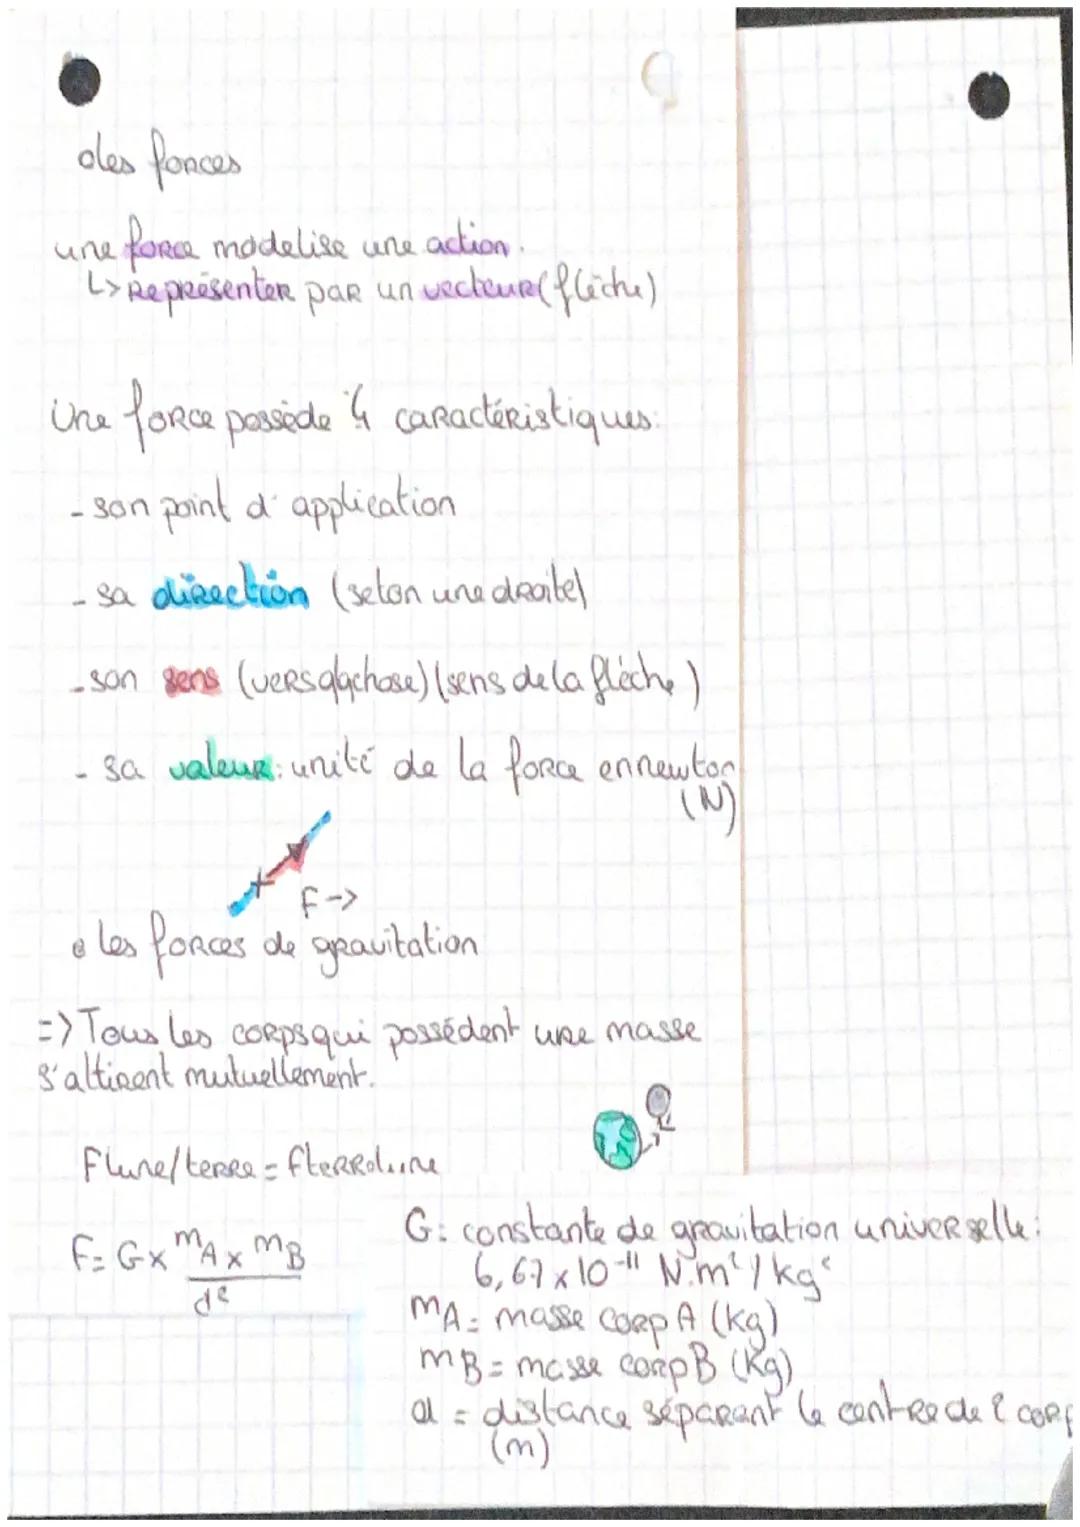 des forces
une force modelise une action.
↳> Représenter par un vecteur (flèche)
Une force possède 4 caractéristiques:
- son point d'application
- sa direction (selon une droite)
- son sens (vers qqchose) (sens de la flèche)
- sa valeur: unité de la force en newton
(N)
F ->
• les forces de gravitation
=> Tous les corps qui possédent une masse
s'attirent mutuellement.
Flune/terre = fterre/lune
F = G x mA x mB
d²
G: constante de gravitation universelle:
6,67 x 10⁻¹¹ N.m²/kg²
mA = masse corp A (kg)
mB = masse corp B (kg)
d = distance séparant le centre de 2 corp
(m)